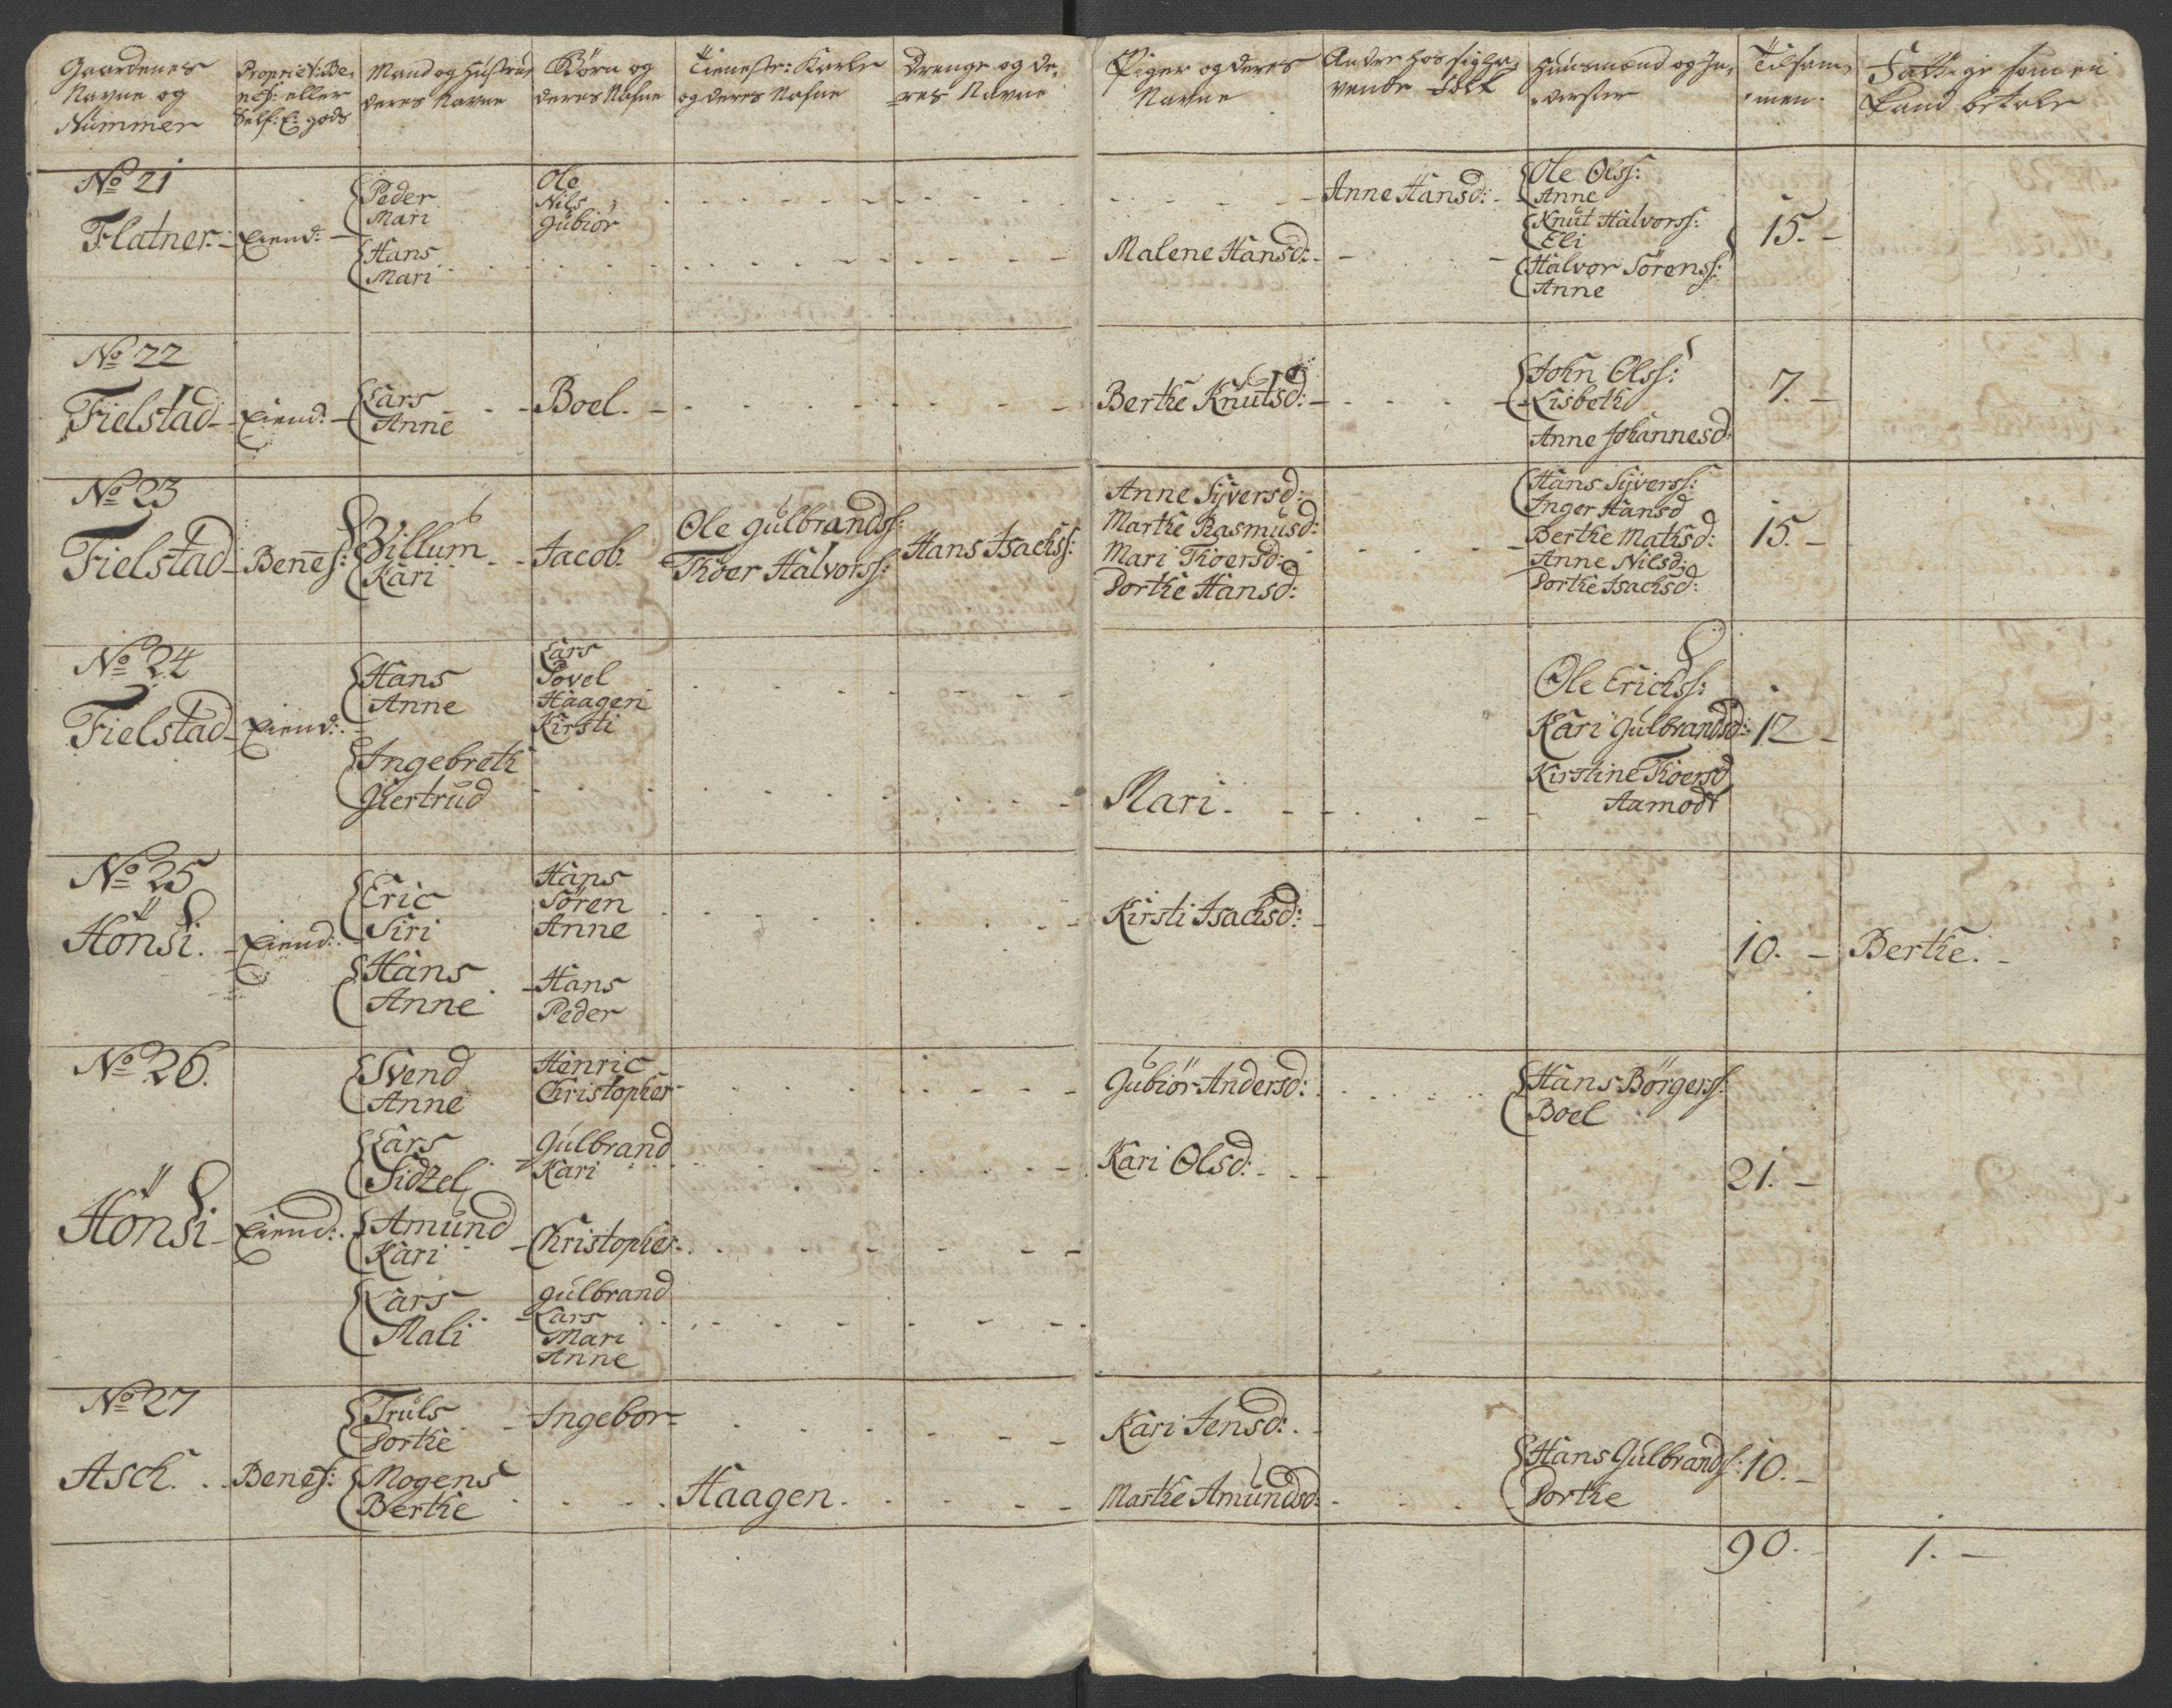 Gaardenes Navne og Nummer
Propriet: Be, nef: eller Self: E: gods
Mand og Hustrue deres Navne
Børn og deres Nafne
Tieneste: Karle og deres Nafne
Drenge og de, res Navne
Piger og deres Navne
Andre hos sig ha, vende folk
Huusmænd og In, derster
Tilsam, men.
Fattige som ei Kand betale
No 21
Flatner. Eiend:
Peder
Mari
Hans
Mari
Ole
Nils
Gubiör
Malene Hansd:
Anne Hansd:
Ole Olss:
Anne
Knut Halvorss:
Eli
Halvor Sörenss:
Anne
15.
No 22
Fielstad Eiend:
Lars
Anne
Boel.
Berthe Knutsd:
John Olss:
Lisbeth
Anne Johannesd:
7.
No 23
Fielstad Benef:
Villum
Kari
Jacob.
Ole Gulbrandss:
Thoer Halvorss:
Hans Isachss:
Anne Syversd:
Marthe Rasmusd:
Mari Thoersd:
Dorthe Hansd:
Hans Syverss:
Inger Hansd
Berthe Mathsd:
Anne Nilsd:
Dorthe Isachsd:
15.
No 24
Fielstad Eiend:
Hans
Anne
Ingebreth
Giertrud
Lars
Povel
Haagen
Kirsti
Mari.
Ole Erichss:
Kari Gulbrandsd:
Kirstine Thoersd
Aamodt
12
No 25
Hönsi. Eiend:
Eric
Siri
Hans
Anne
Hans
Sören
Anne
Hans
Peder
Kirsti Isachsd:
10.
Berthe.
No 26.
Hönsi Eiend:
Svend
Anne
Lars
Sidzel
Amund
Kari
Lars
Mali
Henric
Christopher
Gulbrand
Kari
Christopher
Gulbrand
Lars
Mari
Anne
Gubiör Andersd:
Kari Olsd:
Hans Börgerss:
Boel
21.
No 27
Asch. Benef:
Truls
Dorthe
Mogens
Berthe
Ingebor
Haagen.
Kari Jensd:
Marthe Amundsd:
Hans Gulbrands:
Dorthe
10.
90. 1.